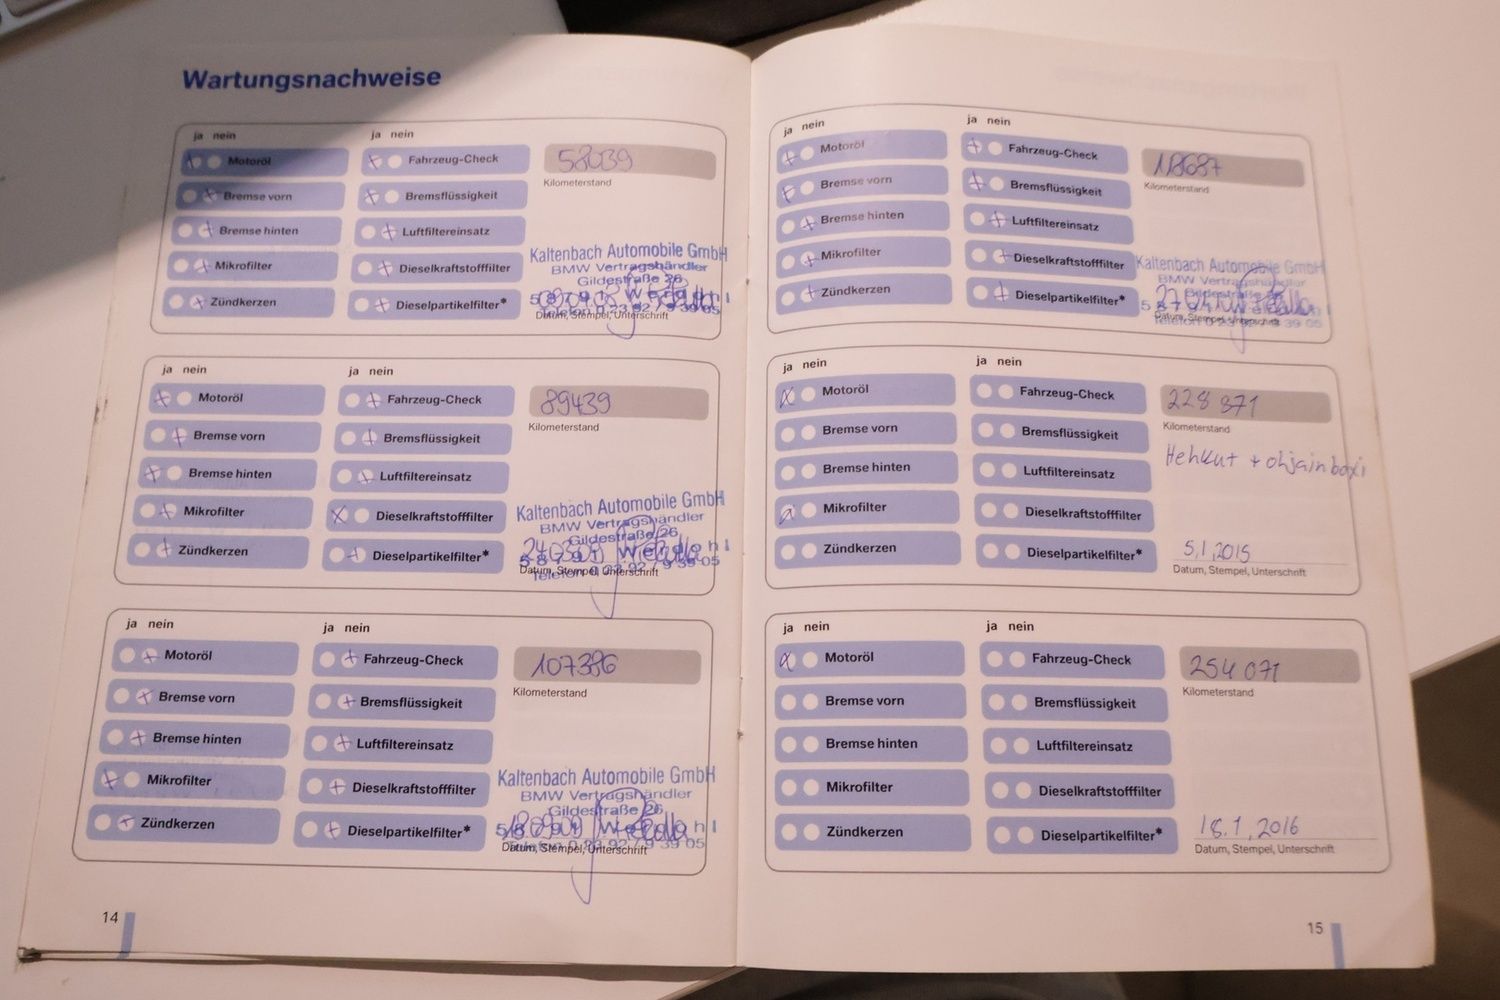 Wartungsnachweise
ja nein
ja nein
Motoröl
Fahrzeug-Check
58039
Kilometerstand
Bremse vorn
Bremsflüssigkeit
Bremse hinten
Luftfiltereinsatz
Mikrofilter
Dieselkraftstofffilter
Zündkerzen
Dieselpartikelfilter*
Kaltenbach Automobile GmbH
BMW Vertragshändler
Gildestraße 26
Datum, Stempel, Unterschrift
ja nein
ja nein
Motoröl
Fahrzeug-Check
89439
Kilometerstand
Bremse vorn
Bremsflüssigkeit
Bremse hinten
Luftfiltereinsatz
Mikrofilter
Dieselkraftstofffilter
Zündkerzen
Dieselpartikelfilter*
Kaltenbach Automobile GmbH
BMW Vertragshändler
Gildestraße 26
58791 Werdohl
Telefon 0 23 92 / 9 39 05
Datum, Stempel, Unterschrift
ja nein
ja nein
Motoröl
Fahrzeug-Check
107386
Kilometerstand
Bremse vorn
Bremsflüssigkeit
Bremse hinten
Luftfiltereinsatz
Mikrofilter
Dieselkraftstofffilter
Zündkerzen
Dieselpartikelfilter*
Kaltenbach Automobile GmbH
BMW Vertragshändler
Gildestraße 26
Datum, Stempel, Unterschrift
14
ja nein
ja nein
Motoröl
Fahrzeug-Check
118687
Kilometerstand
Bremse vorn
Bremsflüssigkeit
Bremse hinten
Luftfiltereinsatz
Mikrofilter
Dieselkraftstofffilter
Zündkerzen
Dieselpartikelfilter*
Kaltenbach Automobile GmbH
BMW Vertragshändler
Gildestraße 26
Datum, Stempel, Unterschrift
ja nein
ja nein
Motoröl
Fahrzeug-Check
228 871
Kilometerstand
Bremse vorn
Bremsflüssigkeit
Bremse hinten
Luftfiltereinsatz
Mikrofilter
Dieselkraftstofffilter
Zündkerzen
Dieselpartikelfilter*
5.1.2015
Datum, Stempel, Unterschrift
ja nein
ja nein
Motoröl
Fahrzeug-Check
254 071
Kilometerstand
Bremse vorn
Bremsflüssigkeit
Bremse hinten
Luftfiltereinsatz
Mikrofilter
Dieselkraftstofffilter
Zündkerzen
Dieselpartikelfilter*
18.1.2016
Datum, Stempel, Unterschrift
15